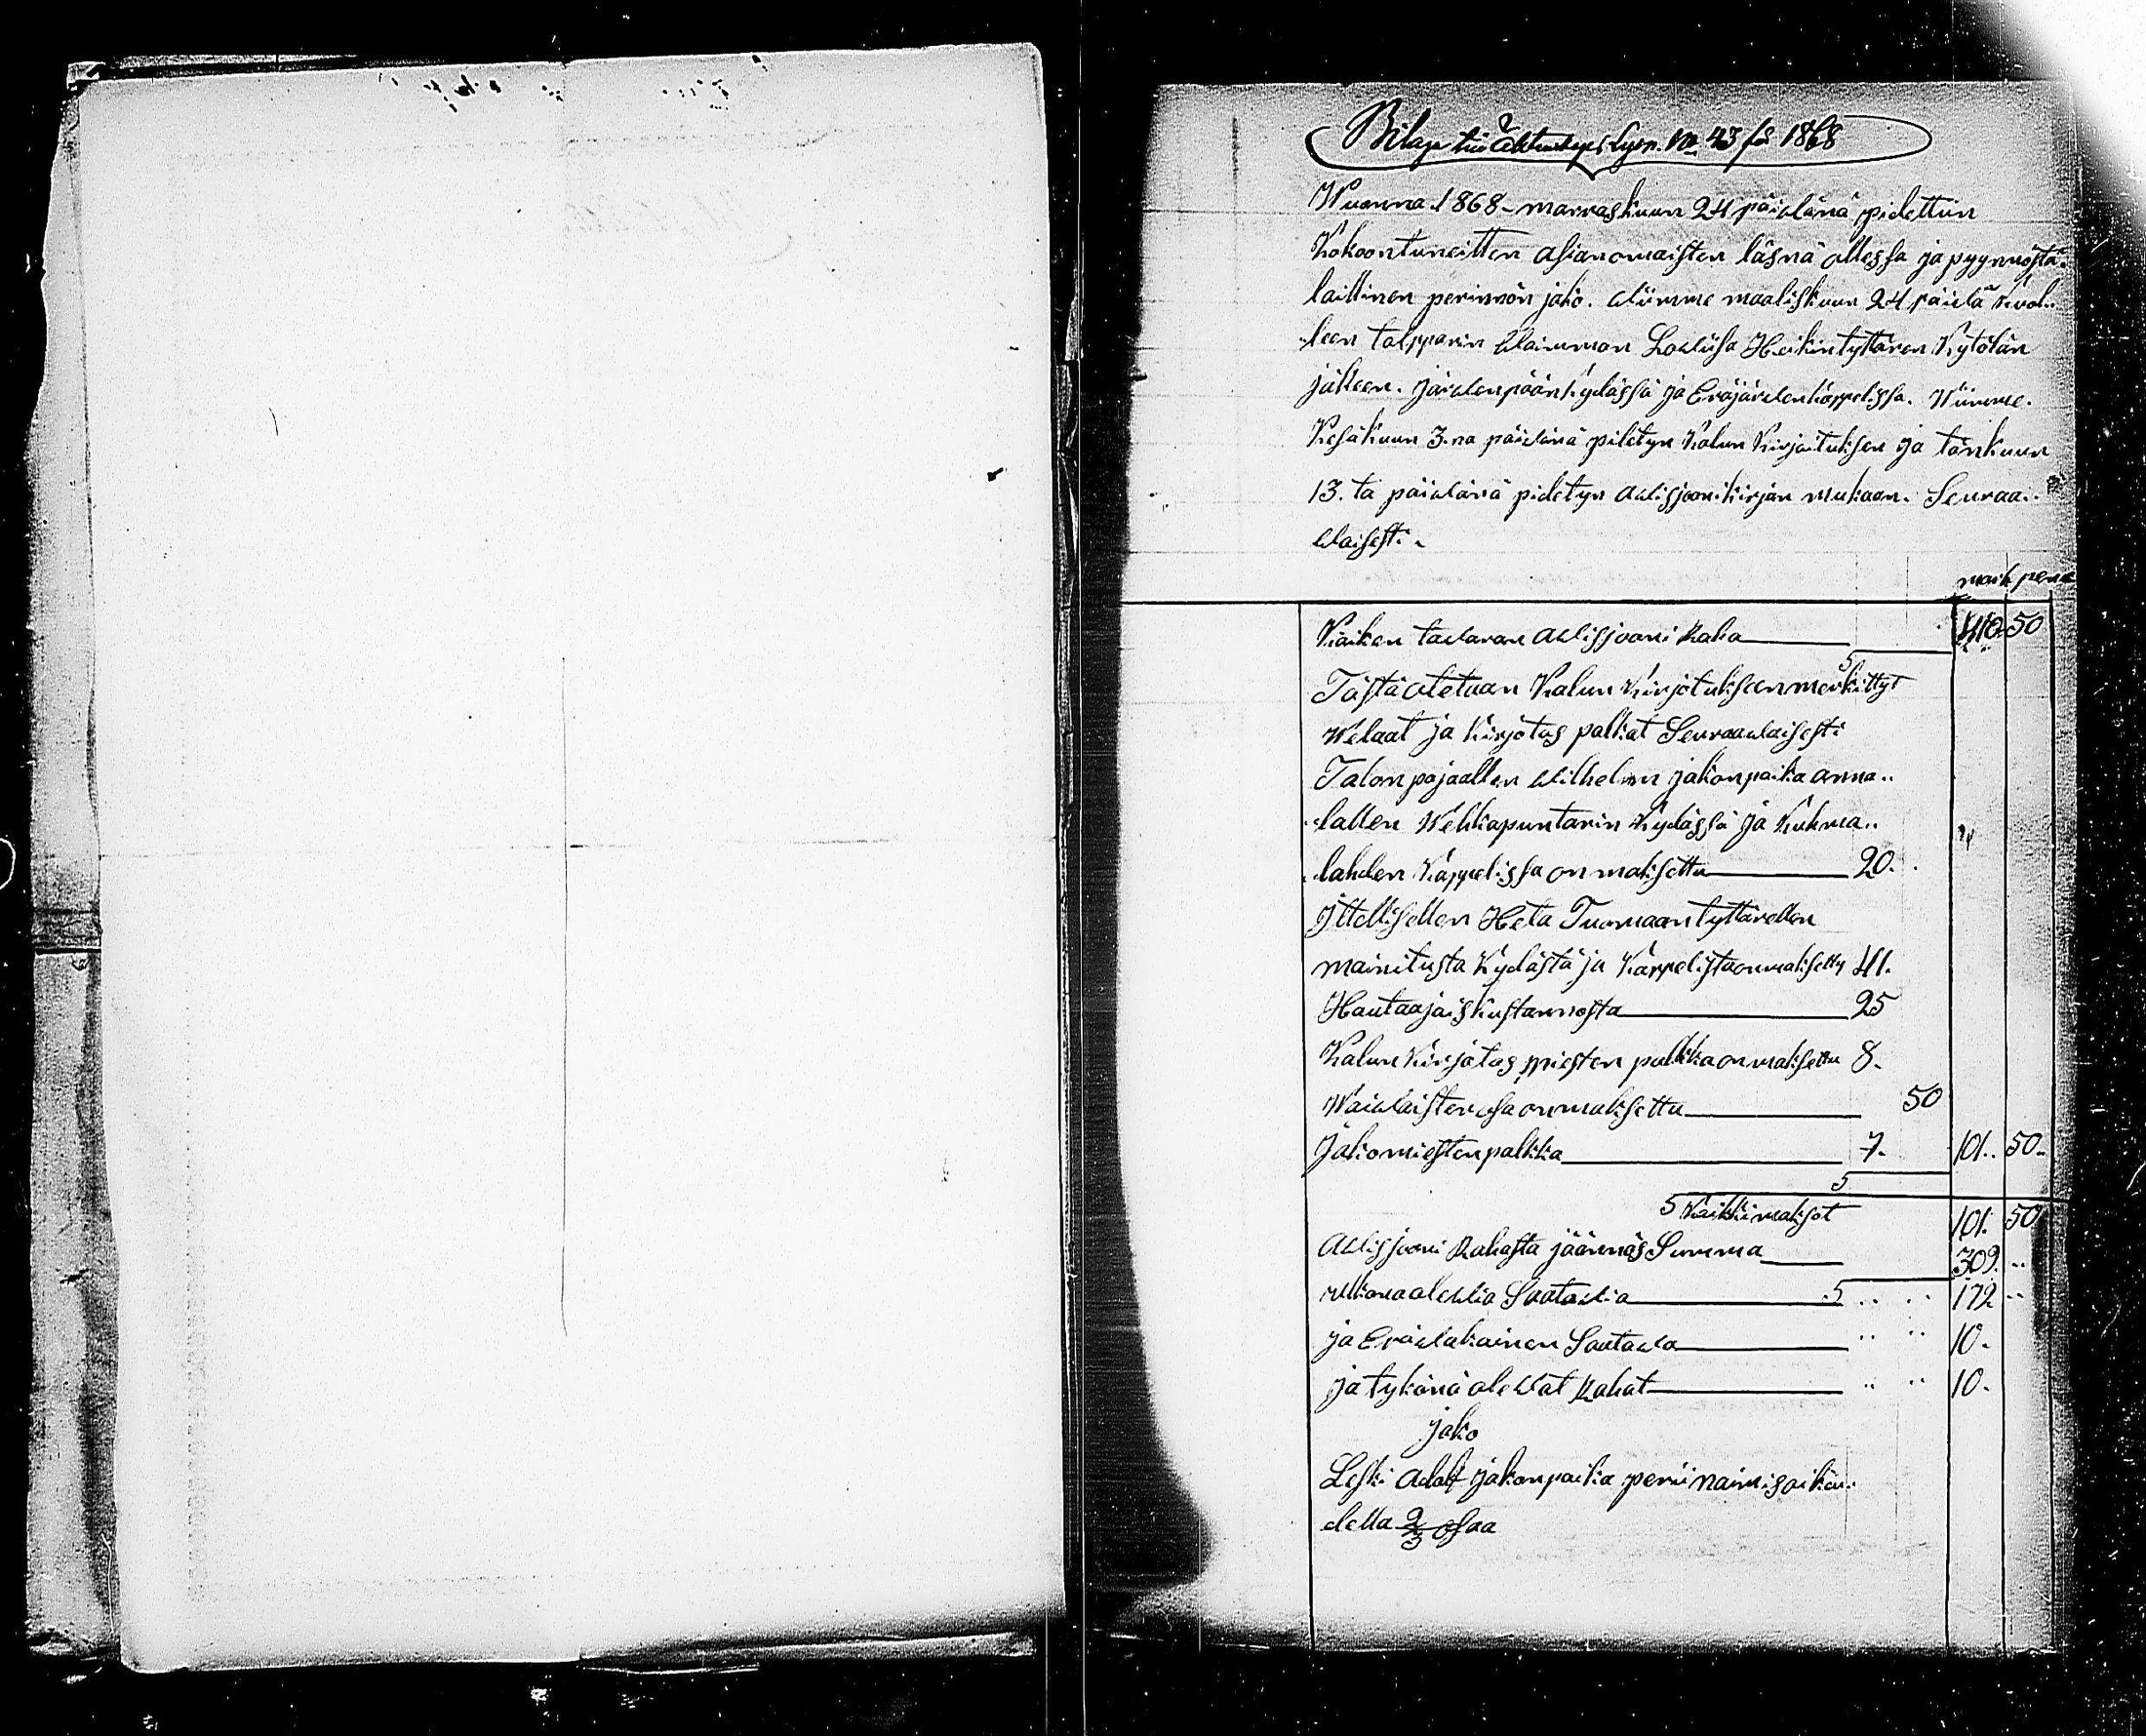 Bilaga till N:o 43 för 1868
Wuonna 1868 marraskuun 24 päiwänä pidettiin
Kokoontuneitten asianomaisten läsnä ollessa ja pyynnöstä
laillinen perinnön jako. wiimme maaliskuun 24 päiwä kuol..
..leen talpparin waimmon Lowiisa Heikintyttären Kytölän
jälkeen. järwenpään kylässä ja Eräjärwen kappelissa. Wiimme.
Kesäkuun 3.na päiwänä pidetyn Kalun Kirjoituksen ja tänkuun
13. ta päiwänä pidetyn awisjooni kirjan mukaan. Seuraa..
waisesti.
mark penn
Kaiken tawaran awisjooni Raha 410. 50
5
Tästä otetaan Kalun Kirjotukseen merkittyt
Welaat ja Kirjotus palkat Seuraawaisesti
Talonpojaallen wilhelm jakonpaika anna..
..lallen Wehkapuntarin Kylässä ja Kuhma..
..lahden Kappelissa on maksettu 20.
Ittellisellen Heta Tuomaantyttärellen
mainitusta Kylästä ja Kappelista on maksettu 41.
Hautaajais kustannosta 25
Kalun Kirjotus miesten palkka on maksettu 8.
Waiwaisten osa on maksettu 50
Jakomiesten palkka 7. 101.. 50.
5
5 Kaikki maksot 101. 50
Awisjooni Rahasta jäännös Summa 309. ..
Ulkona olewia Saatawia 5 .. .. 172 ..
ja Eräwakainen Saatawa .. .. 10.
ja tykönä olewat Rahat .. .. 10.
jako
Leski Adolf jakonpaika perii naimisoikeu..
della 2/3 osaa